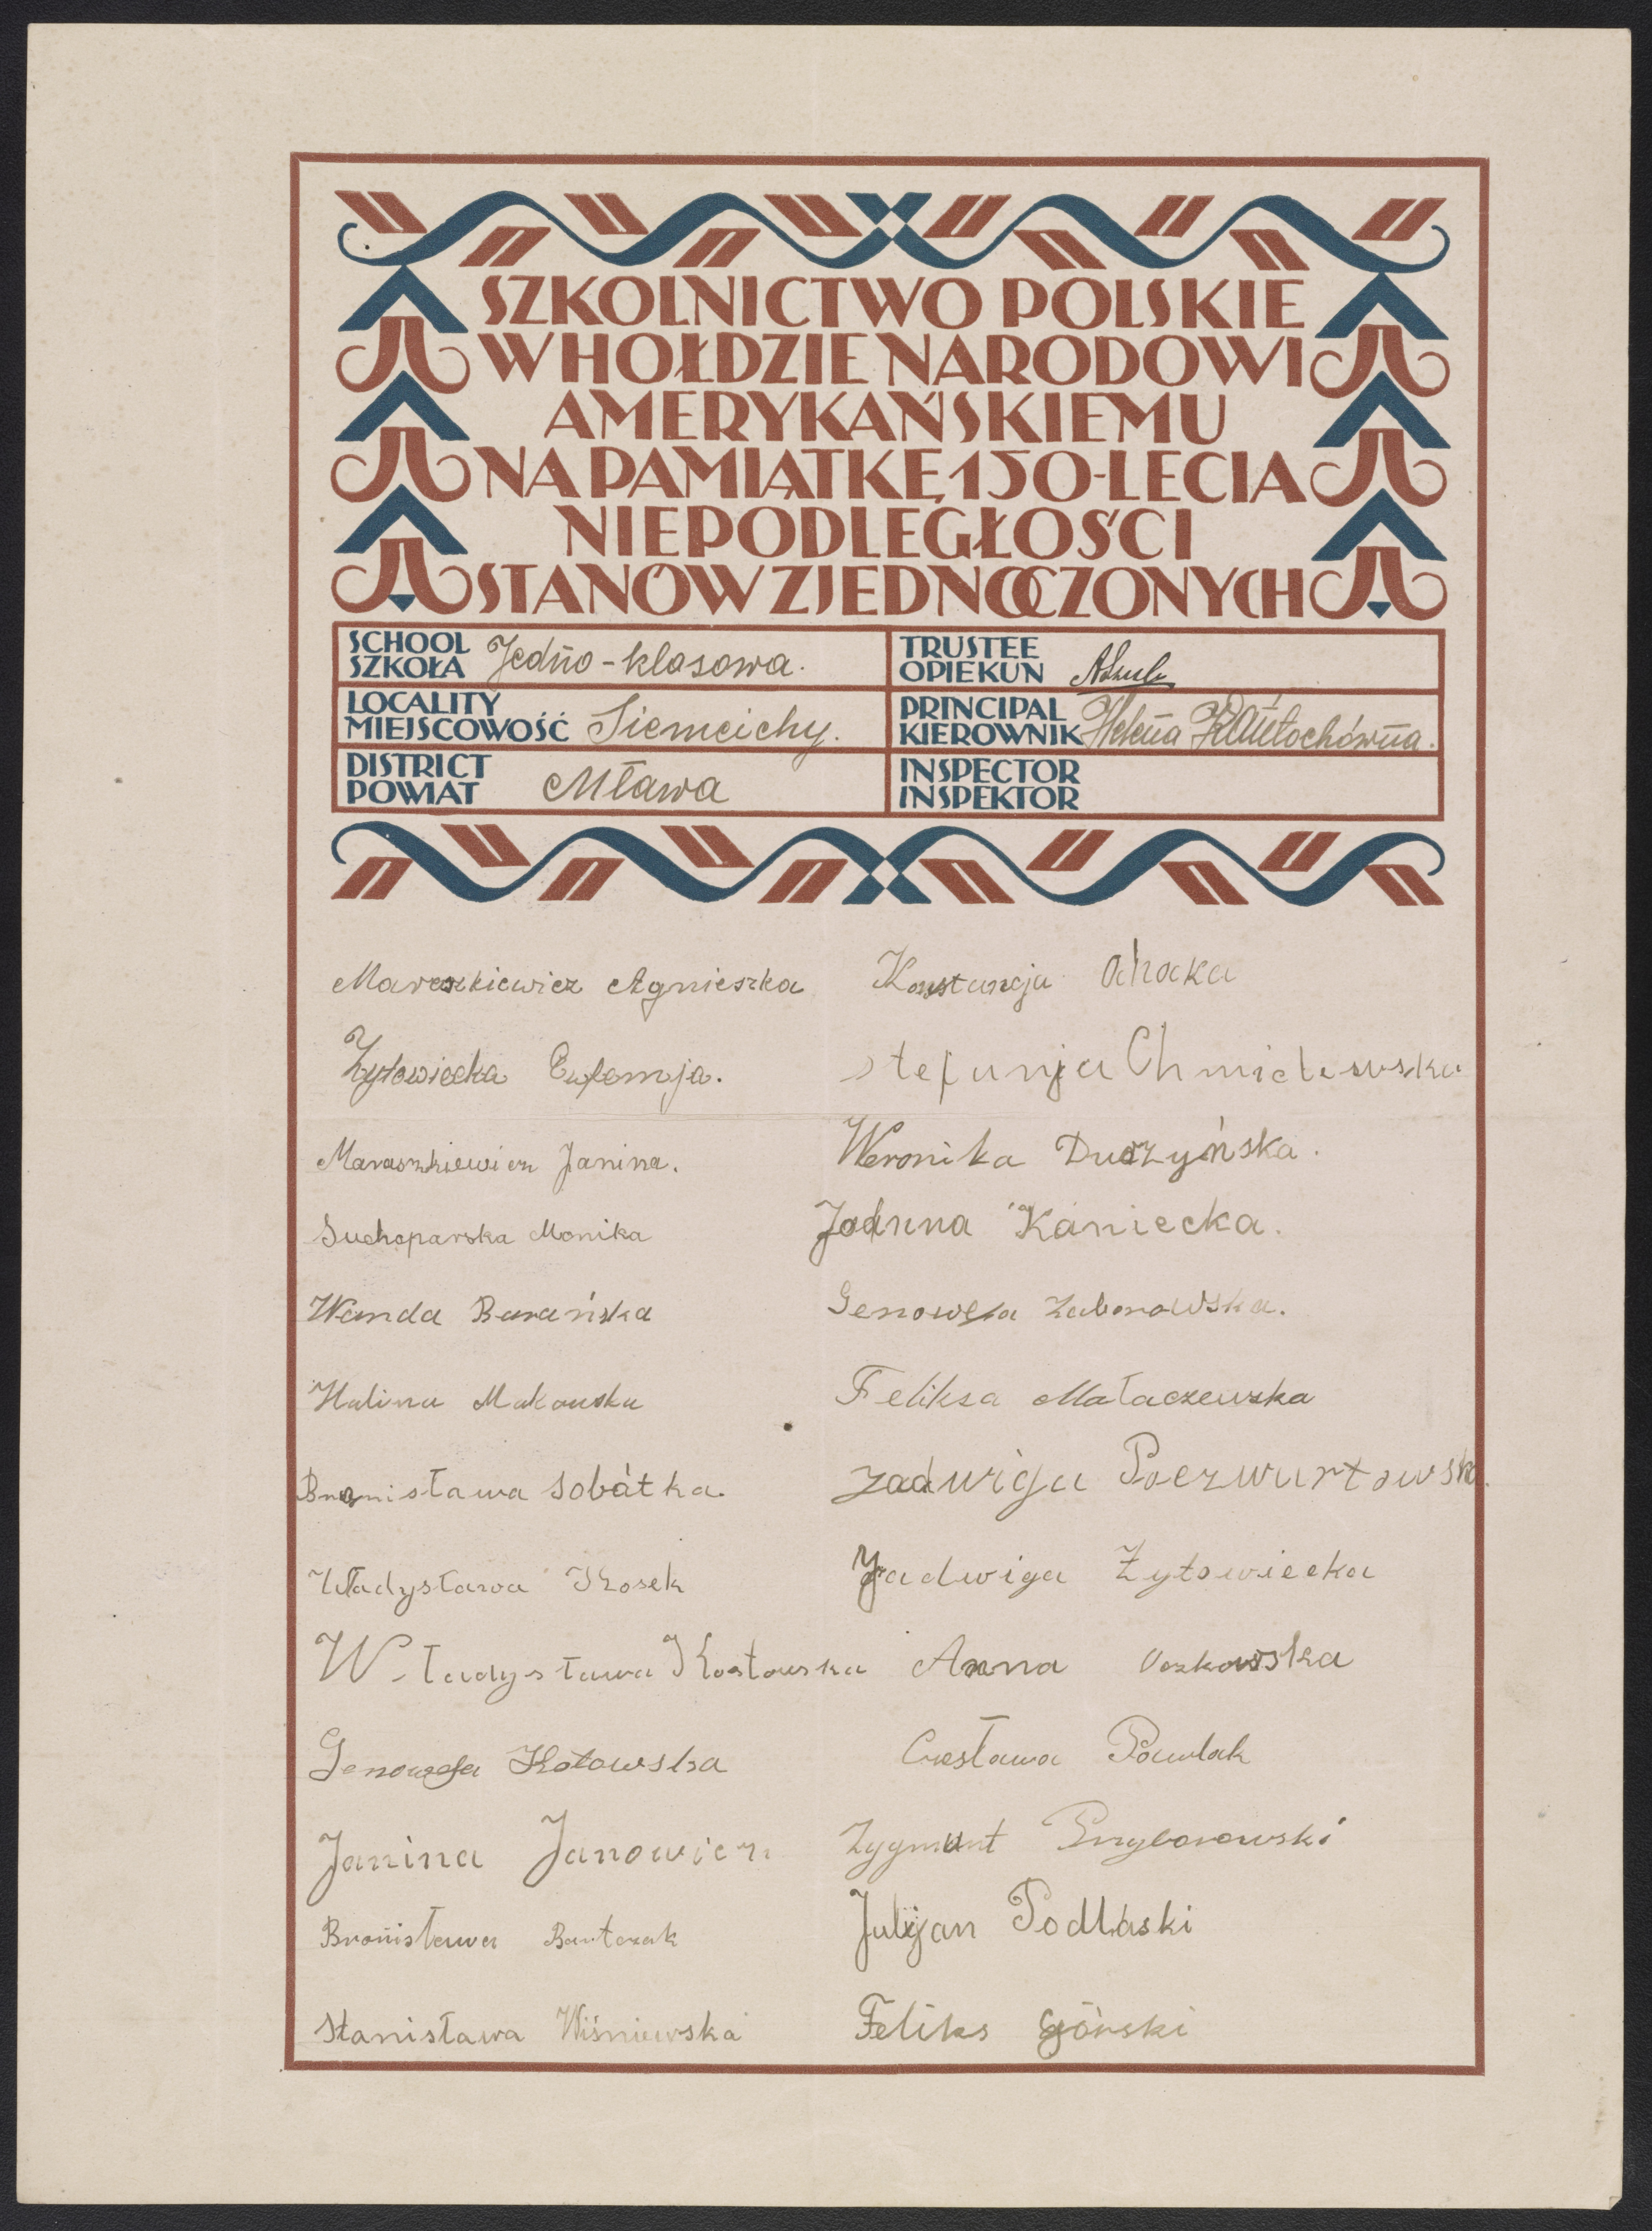 SZKOLNICTWO POLSKIE
W HOŁDZIE NARODOWI
AMERYKAŃSKIEMU
NA PAMIĄTKĘ 150-LECIA
NIEPODLEGŁOŚCI
STANÓW ZJEDNOCZONYCH
SCHOOL
SZKOŁA Jedno-klasowa.
TRUSTEE
OPIEKUN
LOCALITY
MIEJSCOWOŚĆ Siemcichy.
PRINCIPAL
KIEROWNIK Helena
DISTRICT
POWIAT Mława
INSPECTOR
INSPEKTOR
Mareszkiewicz Agnieszka
Żytowiecka Eufemja.
Maraszkiewicz Janina.
Suchoparska Monika
Wanda Barańska
Halina Makowska
Bronisława Sobótka.
Władysława Kosek
Władysława Kostowska
Genowefa Kotowska
Janina Janowicz
Bronisława Bartczak
Stanisława Wiśniewska
Konstancja
Stefanja Chmielewska
Weronika Duczyńska.
Janina Kaniecka.
Genowefa Zaborowska.
Feliksa Małaczewska
Jadwiga
Jadwiga Żytowiecka
Anna
Czesława Pawlak
Zygmunt Przyborowski
Julijan Podlaski
Feliks Górski